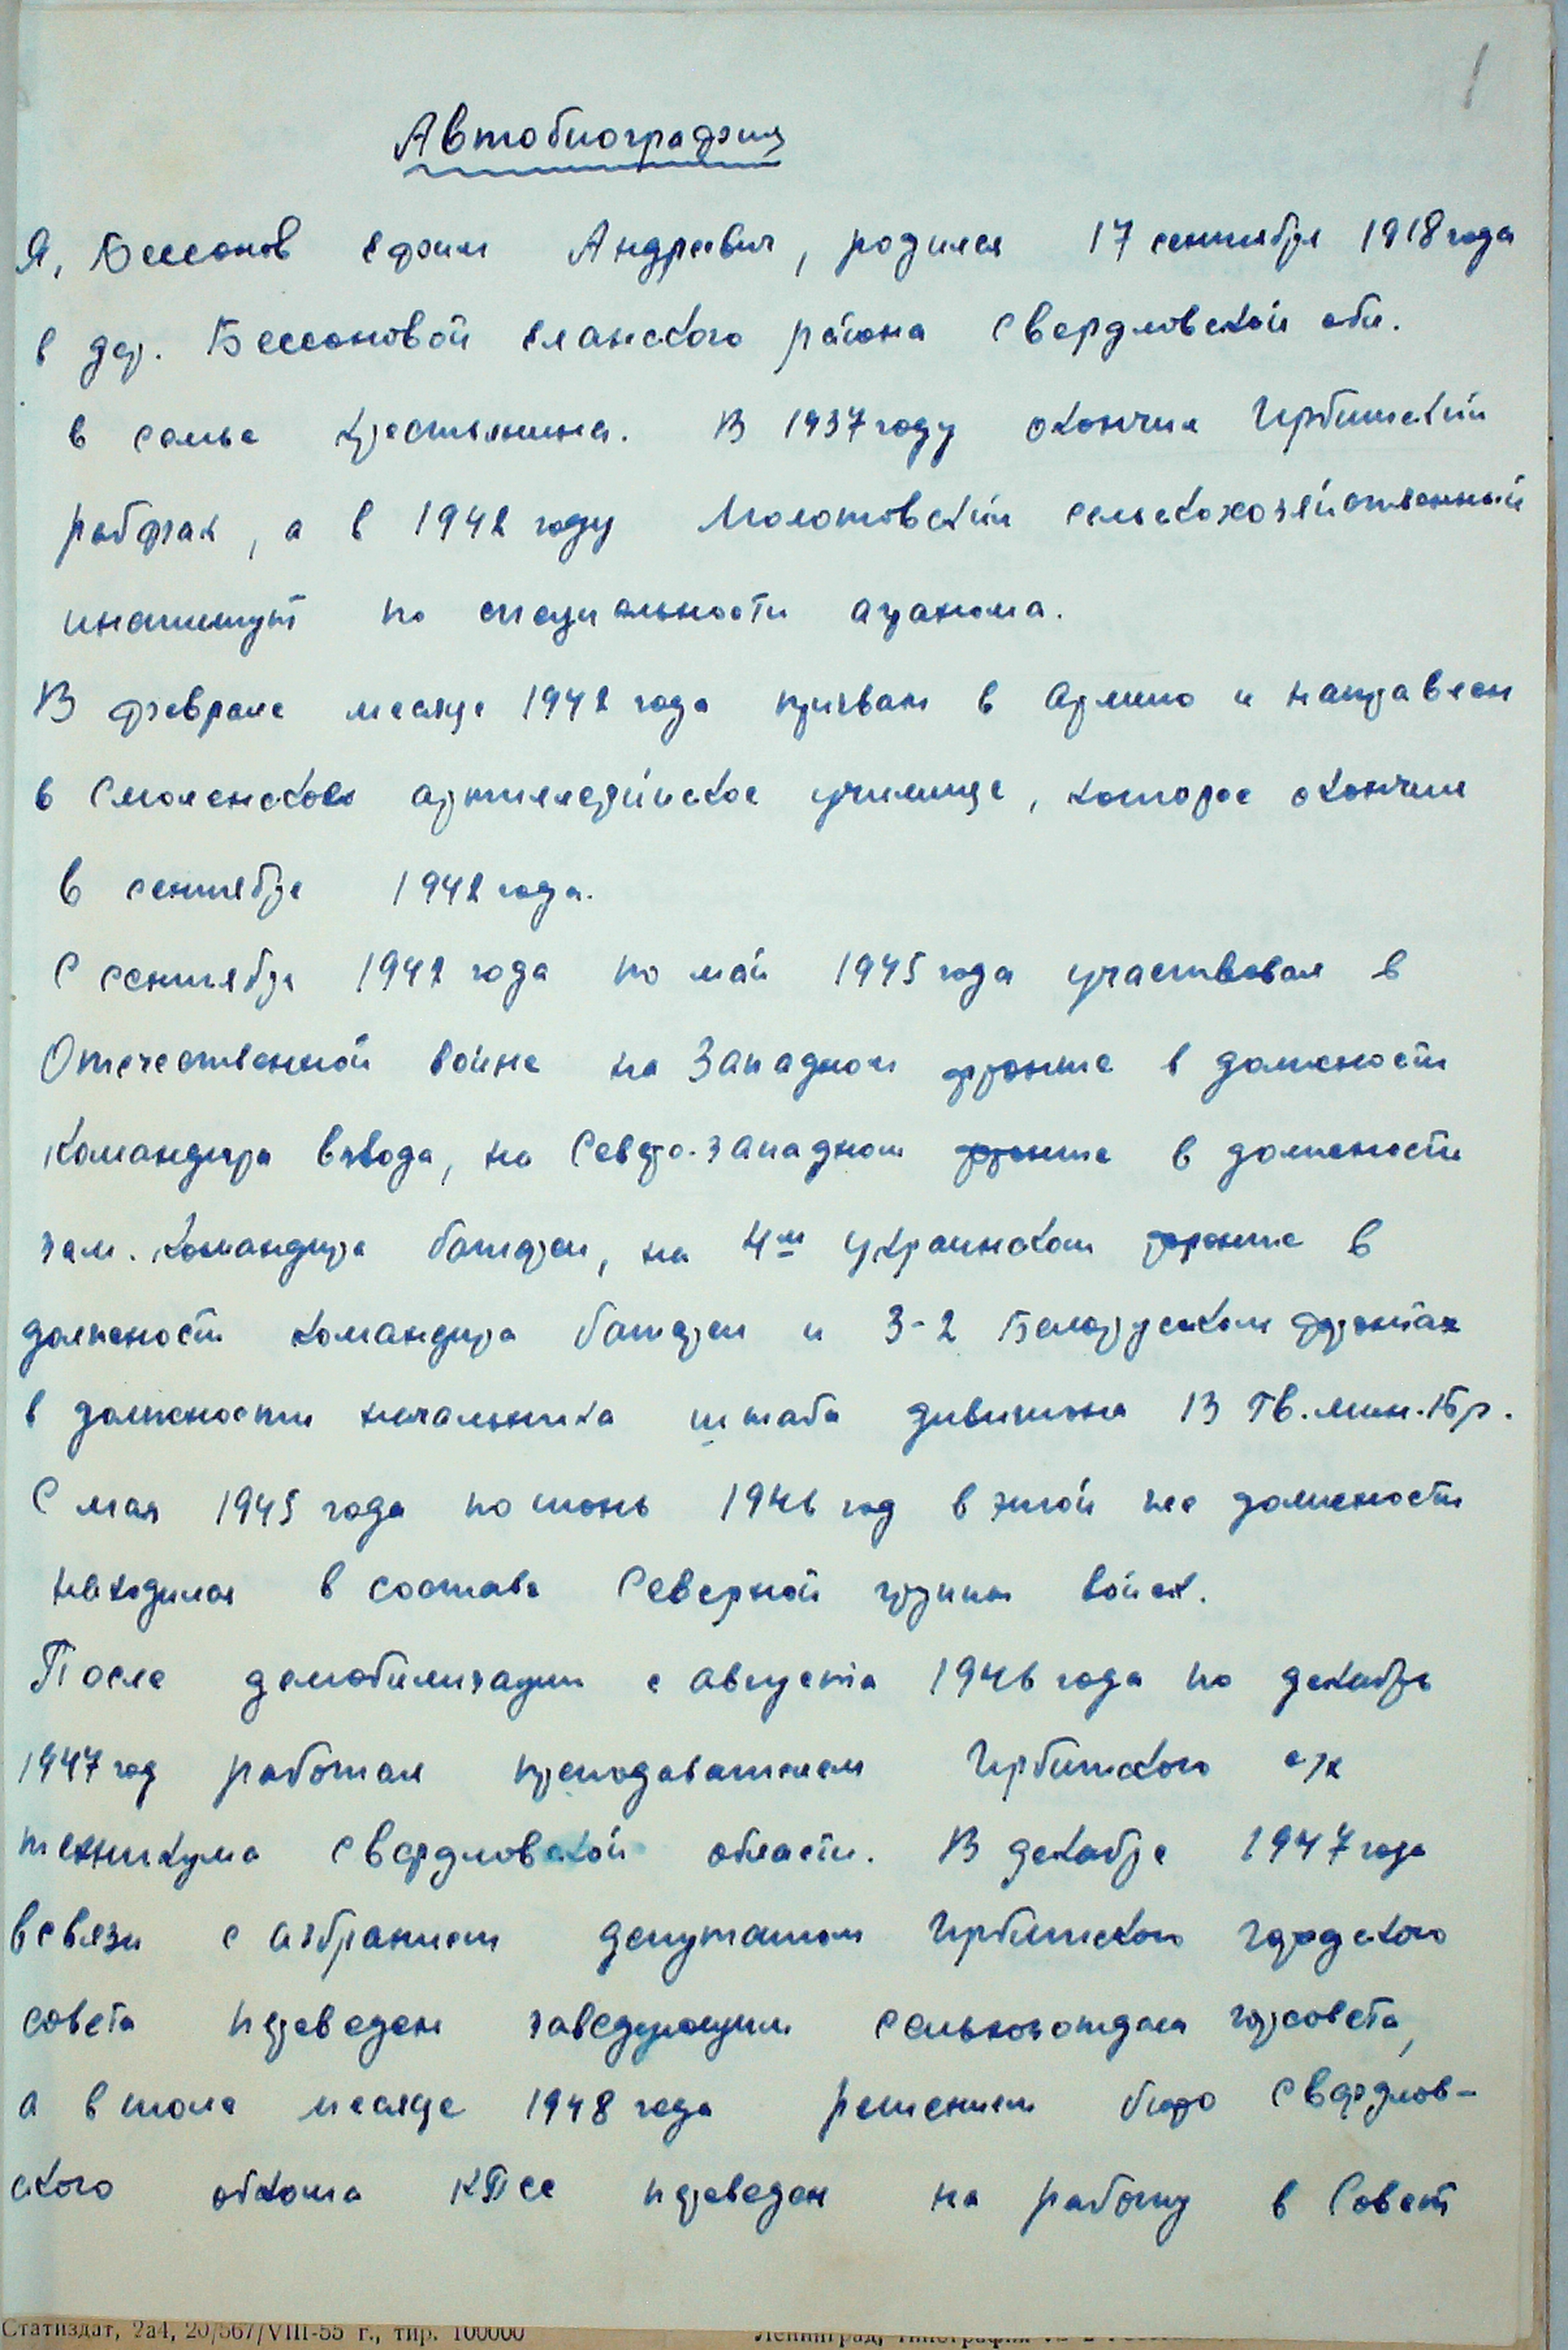 1
Автобиография
Я, Бессонов Ефим Андреевич, родился 17 сентября 1918 года
в дер. Бессоновой Еланского района Свердловской обл.
в семье крестьянина. В 1937 году окончил Ирбитский
рабфак, а в 1942 году Молотовский сельскохозяйственный
институт по специальности агронома.
В феврале месяце 1942 года призван в армию и направлен
в Смоленское артиллерийское училище, которое окончил
в сентябре 1942 года.
С сентября 1942 года по май 1945 года участвовал в
Отечественной войне на Западном фронте в должности
командира взвода, на Северо-западном фронте в должности
зам. командира батареи, на 4м Украинском фронте в
должности командира батареи и 3-2 Белорусском фронтах
в должности начальника штаба дивизиона 13 Гв. мин. бр.
С мая 1945 года по июнь 1946 год в этой же должности
находился в составе Северной группы войск.
После демобилизации с августа 1946 года по декабрь
1947 год работал преподавателем Ирбитского с/х
техникума Свердловской области. В декабре 1947 года
в связи с избранием депутатом Ирбитского городского
совета переведен заведующим сельхозотдела горсовета,
а в июле месяце 1948 года решением бюро Свердлов-
ского обкома КПСС переведен на работу в Совет
Статиздат, 2а4, 20/567/VIII-55 г., тир. 100000